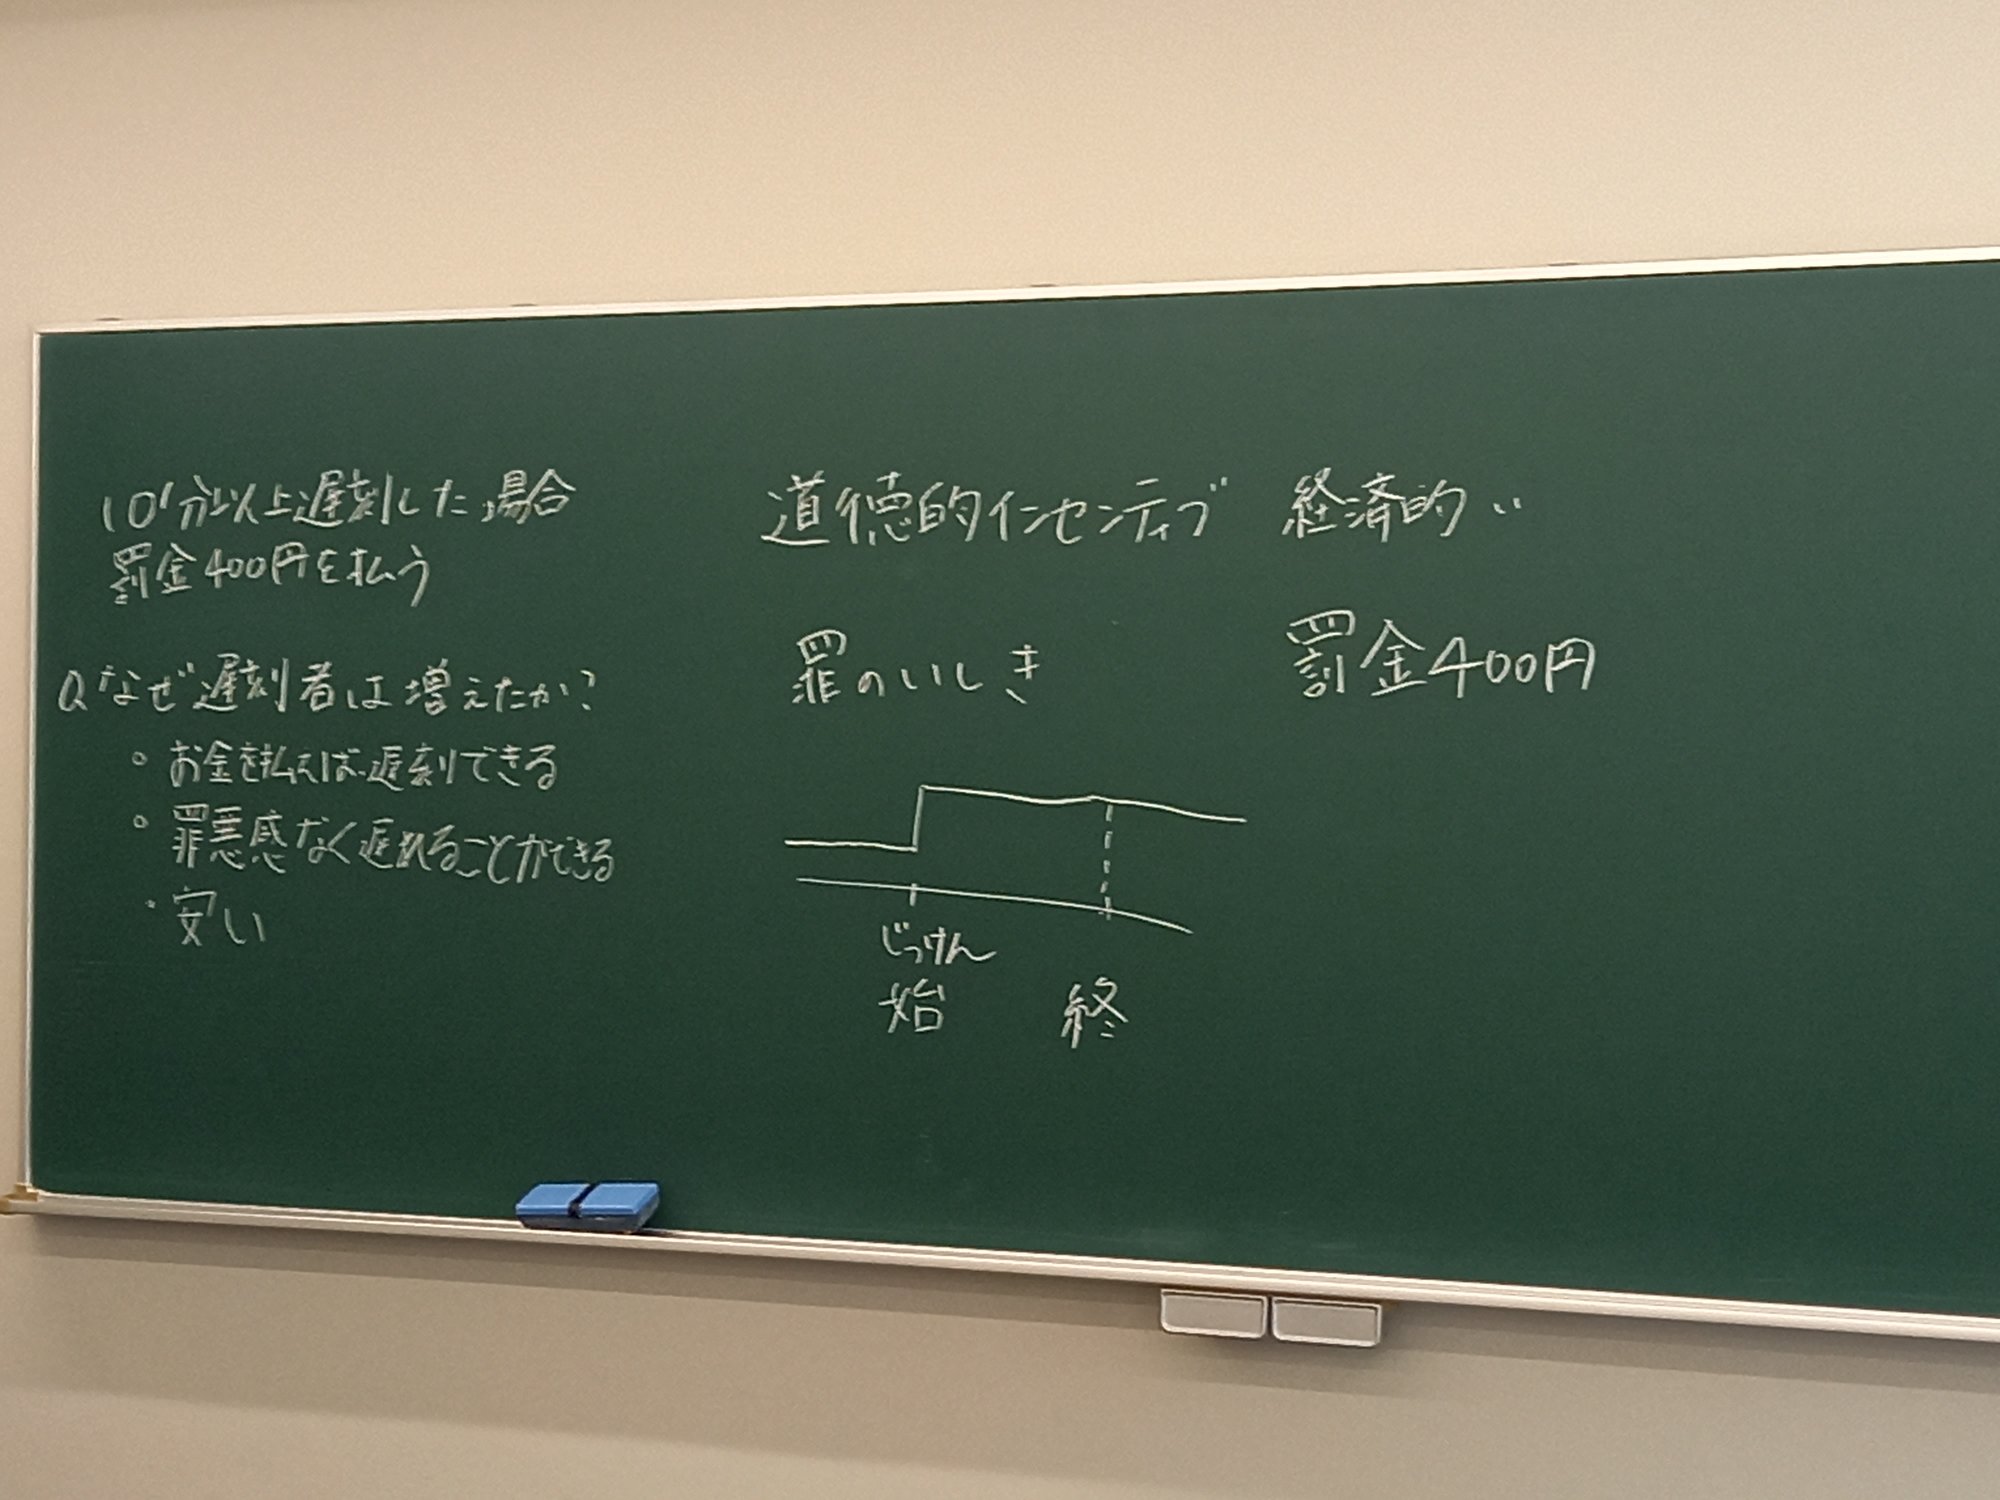 10分以上遅刻した場合
罰金400円を払う
Q なぜ遅刻者は増えたか?
○ お金を払えば遅刻できる
○ 罪悪感なく遅れることができる
・安い
道徳的インセンティブ
罪のいしき
じっけん
始 終
経済的 〃
罰金400円